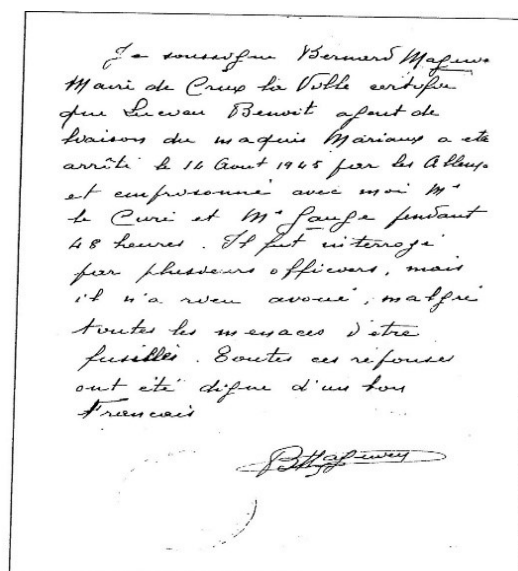 Je soussigné Bernard Magu
Maire de Crux la Ville certifie
que Lucien Benoit agent de
liaison du maquis Mariaux a ete
arrêté le 14 Aout 1945 par les Allem.
et emprisonné avec moi Mr
le Curé et Mr Gauge pendant
48 heures. Il fut interrogé
par plusieurs officiers, mais
il n'a rien avoué, malgré
toutes les menaces d'etre
fusillés. Toutes ces réponses
ont été digne d'un bon
Francais